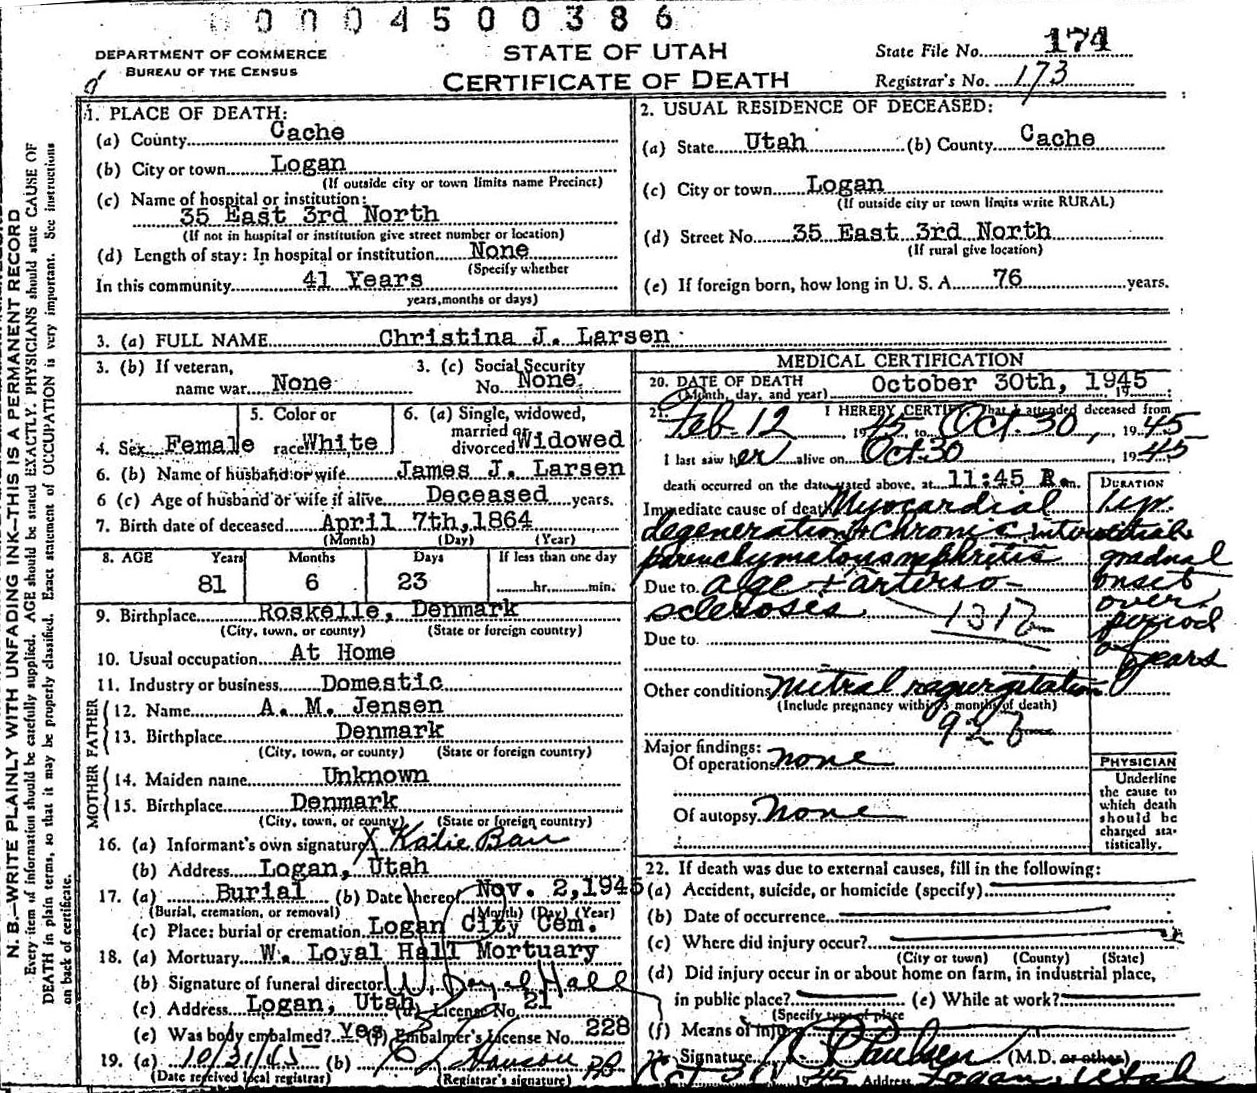 0004500386
DEPARTMENT OF COMMERCE
BUREAU OF THE CENSUS
STATE OF UTAH
CERTIFICATE OF DEATH
State File No. 174
Registrar's No. 173
N. B.—WRITE PLAINLY WITH UNFADING INK—THIS IS A PERMANENT RECORD
Every item of information should be carefully supplied. AGE should be stated EXACTLY. PHYSICIANS should state CAUSE OF
DEATH in plain terms, so that it may be properly classified. Exact statement of OCCUPATION is very important. See instructions
on back of certificate.
1. PLACE OF DEATH:
(a) County Cache
(b) City or town Logan
(If outside city or town limits name Precinct)
(c) Name of hospital or institution:
35 East 3rd North
(If not in hospital or institution give street number or location)
(d) Length of stay: In hospital or institution None
(Specify whether
In this community 41 Years
years, months or days)
2. USUAL RESIDENCE OF DECEASED:
(a) State Utah (b) County Cache
(c) City or town Logan
(If outside city or town limits write RURAL)
(d) Street No. 35 East 3rd North
(If rural give location)
(e) If foreign born, how long in U. S. A. 76 years.
3. (a) FULL NAME Christina J. Larsen
3. (b) If veteran,
name war None
3. (c) Social Security
No. None
4. Sex Female
5. Color or
race White
6. (a) Single, widowed,
married or
divorced Widowed
6. (b) Name of husband or wife James J. Larsen
6 (c) Age of husband or wife if alive Deceased years.
7. Birth date of deceased April 7th, 1864
(Month) (Day) (Year)
8. AGE Years Months Days If less than one day
81 6 23 hr. min.
9. Birthplace Roskelle, Denmark
(City, town, or county) (State or foreign country)
10. Usual occupation At Home
11. Industry or business Domestic
FATHER
12. Name A. M. Jensen
13. Birthplace Denmark
(City, town, or county) (State or foreign country)
MOTHER
14. Maiden name Unknown
15. Birthplace Denmark
(City, town, or county) (State or foreign country)
16. (a) Informant's own signature X Katie Barr
(b) Address Logan, Utah
17. (a) Burial (b) Date thereof Nov. 2, 1945
(Burial, cremation, or removal) (Month) (Day) (Year)
(c) Place: burial or cremation Logan City Cem.
18. (a) Mortuary W. Loyal Hall Mortuary
(b) Signature of funeral director W. Loyal Hall
(c) Address Logan, Utah (d) License No. 21
(e) Was body embalmed? Yes (f) Embalmer's License No. 228
19. (a) 10/31/45 (b)
(Date received local registrar) (Registrar's signature)
MEDICAL CERTIFICATION
20. DATE OF DEATH October 30th, 1945
(Month, day, and year) 19
21. I HEREBY CERTIFY That I attended deceased from
Feb-12 1945, to Oct-30, 1945
I last saw her alive on Oct-30 1945
death occurred on the date stated above, at 11:45 m.
DURATION
Immediate cause of death Myocardial
degeneration + chronic interstitial
parenchymatous nephritis
Due to age + arterio-
sclerosis
1 yr.
gradual
onset
over
period
of years
131b
Due to
Other conditions mitral regurgitation
(Include pregnancy within 3 months of death)
92b
Major findings:
Of operations none
Of autopsy none
PHYSICIAN
Underline
the cause to
which death
should be
charged sta-
tistically.
22. If death was due to external causes, fill in the following:
(a) Accident, suicide, or homicide (specify)
(b) Date of occurrence
(c) Where did injury occur?
(City or town) (County) (State)
(d) Did injury occur in or about home on farm, in industrial place,
in public place? (e) While at work?
(Specify type of place
(f) Means of injury
23. Signature Paulsen (M.D. or other)
Oct 30 1945 Address Logan, Utah